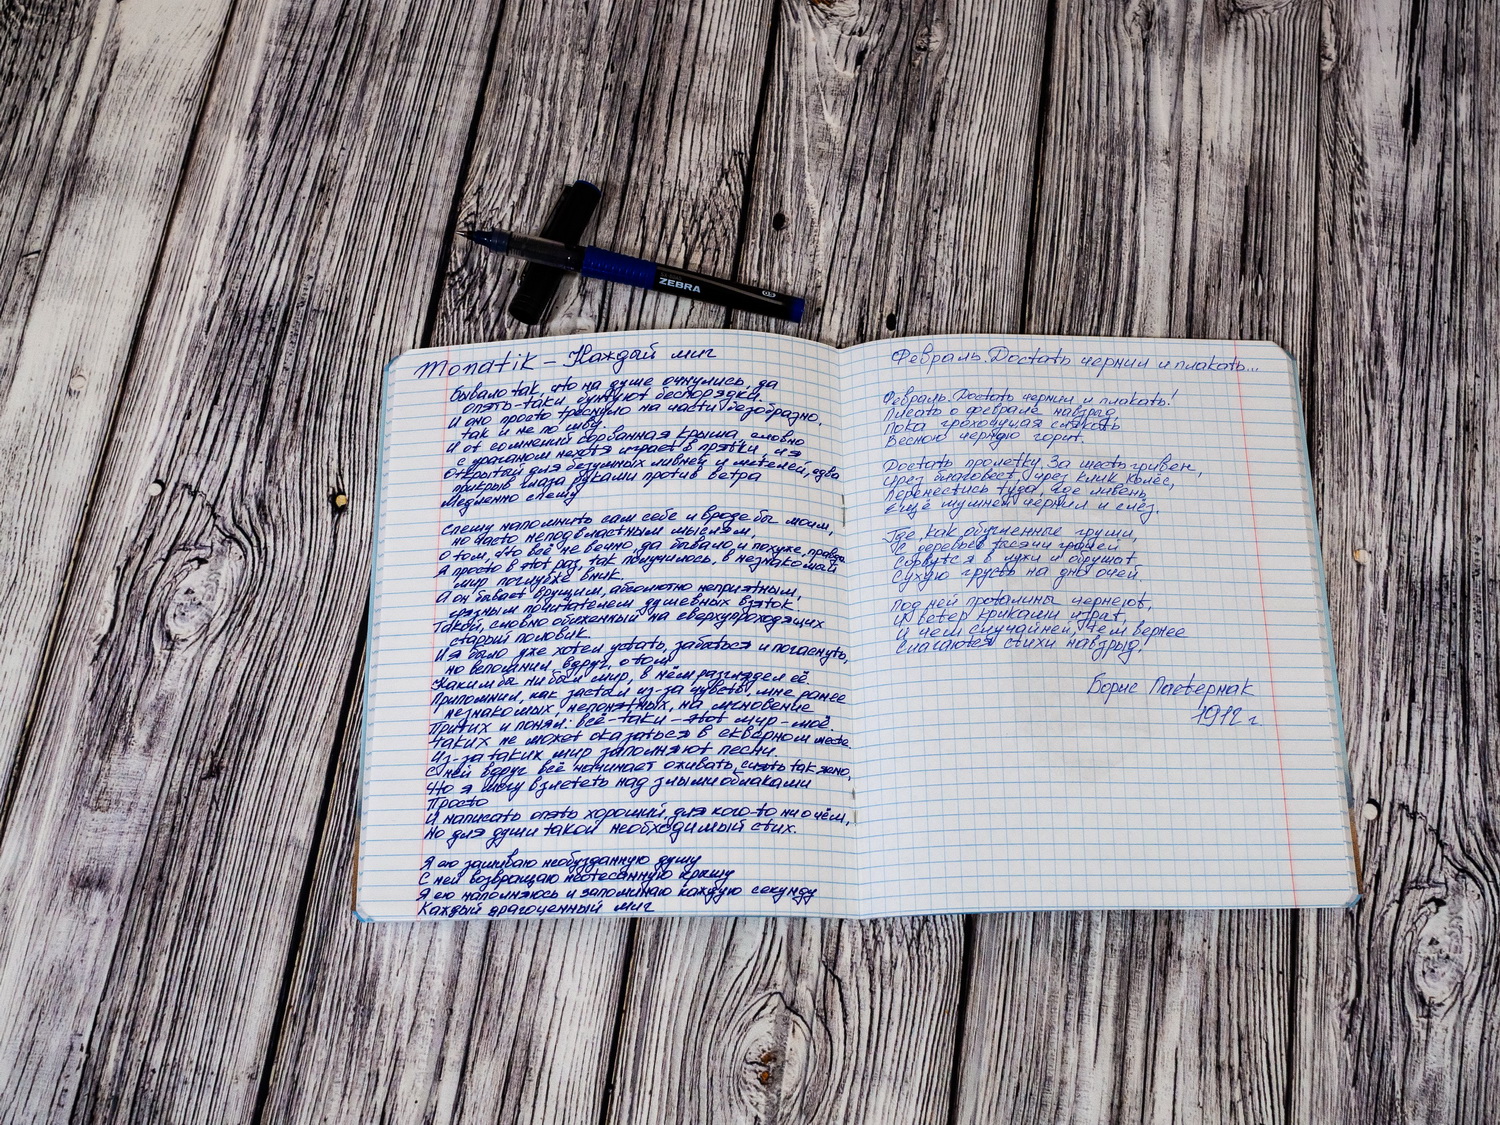 ZEBRA
Monatik – Каждый миг
Бывало так, что на душе очнулись, да
опять-таки бунтуют беспорядки.
И оно просто треснуло на части безобразно,
так и не по шву.
И от сомнений сорванная крыша, словно
с ураганом нехотя играет в прятки, и я
Открытый для безумных ливней и метелей, едва
прикрыв глаза руками против ветра
Медленно спешу
Спешу напомнить сам себе и вроде бы моим,
но часто неподвластным мыслям,
О том, что всё не вечно да бывало и похуже, правда
Я просто в этот раз, так получилось, в незнакомый
мир поглубже вник.
А он бывает врущим, абсолютно неприятным,
грязным почитателем душевных взяток.
Такой, словно обиженный на сверхуproходящих
старый половик
И я было уже хотел устать, забыться и погаснуть,
но вспомнил вдруг, о том
Каким бы ни был мир, в нём разглядел её.
Припомнил, как застыл из-за чувств, мне ранее
незнакомых, непонятных, на мгновение
Притих и понял: всё-таки – этот мир – моё.
Таких не может оказаться в скверном месте.
Из-за таких мир заполняют песни.
С ней вдруг всё начинает оживать, сиять так ясно,
Что я могу взлететь над злыми облаками
Просто
И написать опять хороший, для кого-то ни о чём,
Но для души такой необходимый стих.
Я ею зашиваю необузданную душу
С ней возвращаю неотесанную крышу
Я ею наполняюсь и запоминаю каждую секунду
Каждый драгоценный миг
Февраль. Достать чернил и плакать...
Февраль. Достать чернил и плакать!
Писать о феврале навзрыд,
Пока грохочущая слякоть
Весною черною горит.
Достать пролетку. За шесть гривен
Чрез благовест, чрез клик колес,
Перенестись туда, где ливень
Еще шумней чернил и слез.
Где, как обугленные груши,
С деревьев тысячи грачей
Сорвутся в лужи и обрушат
Сухую грусть на дно очей.
Под ней проталины чернеют,
И ветер криками изрыт,
И чем случайней, тем вернее
Слагаются стихи навзрыд!
Борис Пастернак
1912 г.